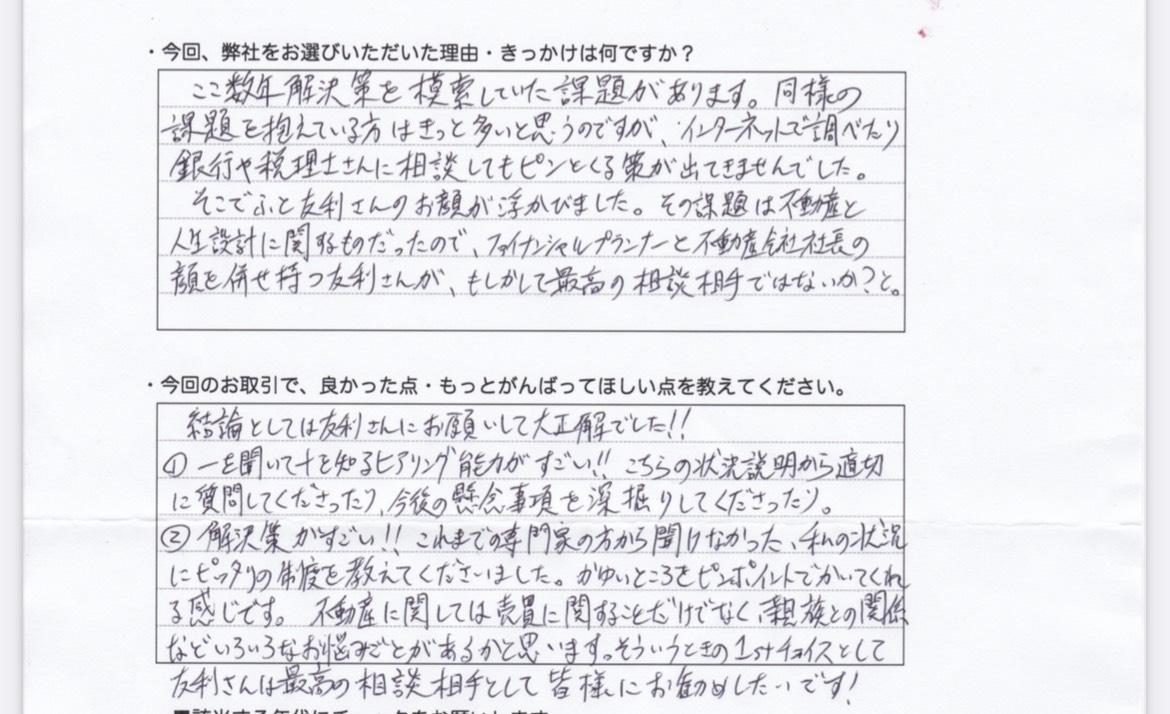 ・今回、弊社をお選びいただいた理由・きっかけは何ですか？
ここ数年解決策を模索していた課題があります。同様の
課題を抱えている方はきっと多いと思うのですが、インターネットで調べたり
銀行や税理士さんに相談してもピンとくる策が出てきませんでした。
そこでふと友利さんのお顔が浮かびました。その課題は不動産と
人生設計に関するものだったので、ファイナンシャルプランナーと不動産会社社長の
顔を併せ持つ友利さんが、もしかして最高の相談相手ではないか？と。
・今回のお取引で、良かった点・もっとがんばってほしい点を教えてください。
結論としては友利さんにお願いして大正解でした!!
① 一を聞いて十を知るヒアリング能力がすごい!! こちらの状況説明から適切
に質問してくださったり、今後の懸念事項を深掘りしてくださったり。
② 解決策がすごい!! これまでの専門家の方から聞けなかった、私の状況
にピッタリの制度を教えてくださいました。かゆいところをピンポイントでかいてくれ
る感じです。不動産に関しては売買に関することだけでなく、親族との関係
などいろいろなお悩みごとがあるかと思います。そういうときの1stチョイスとして
友利さんは最高の相談相手として皆様にお勧めしたいです!
■該当する年代にチェックをお願いします